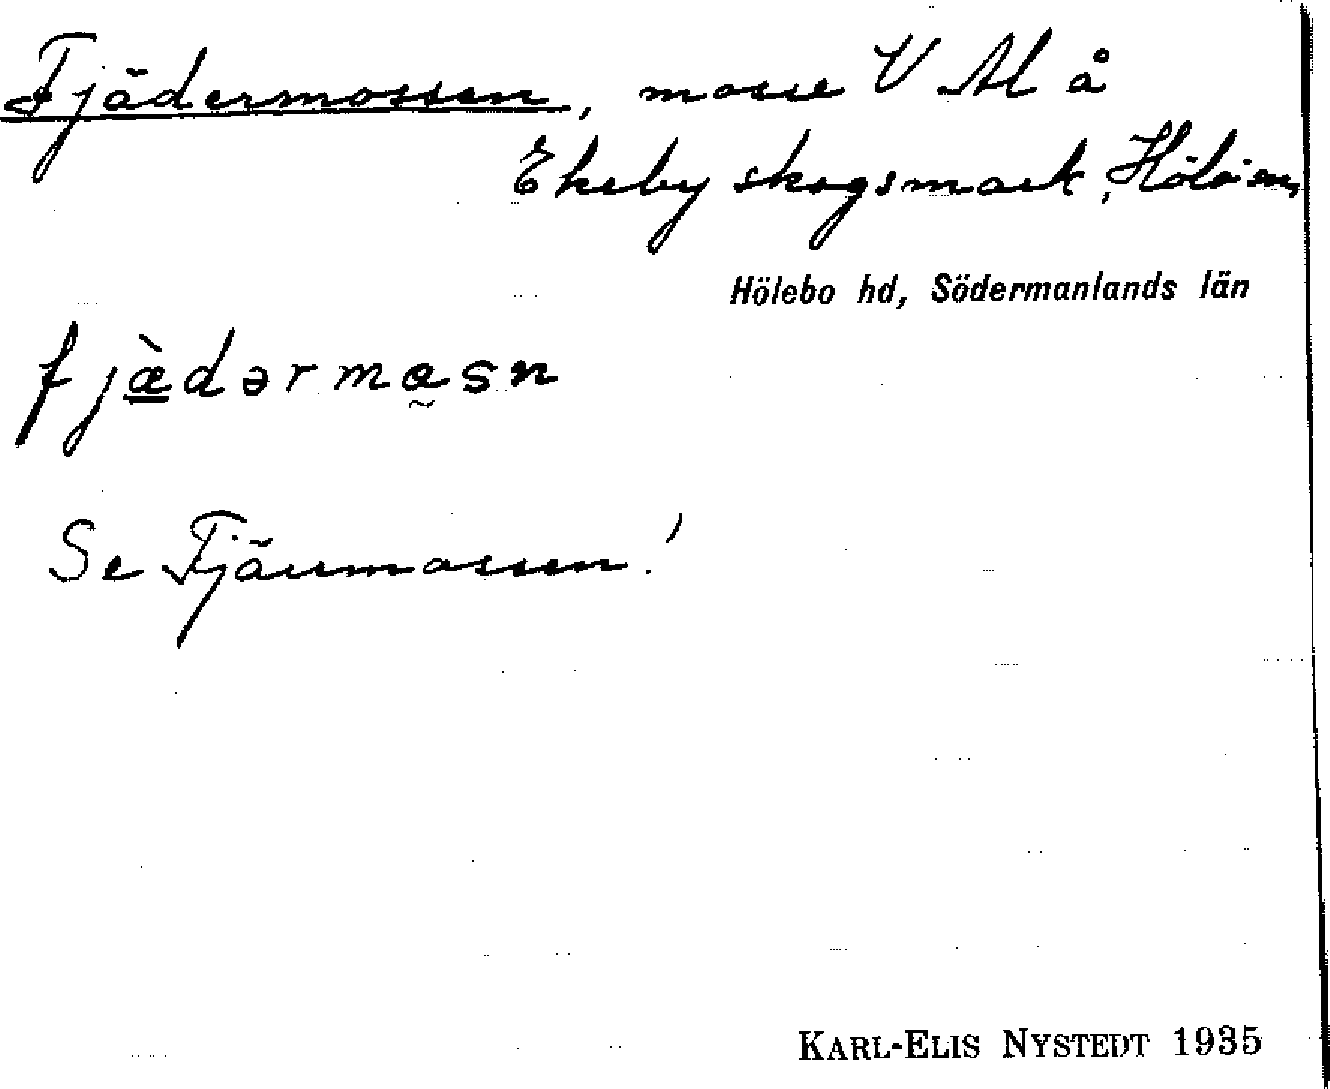 Fjädermossen, mosse V Al å
Ekeby skogsmark, Hölö sn,
Hölebo hd, Södermanlands län
fjæ̀dərmɑsn
Se Fjärmossen!
KARL-ELIS NYSTEDT 1935